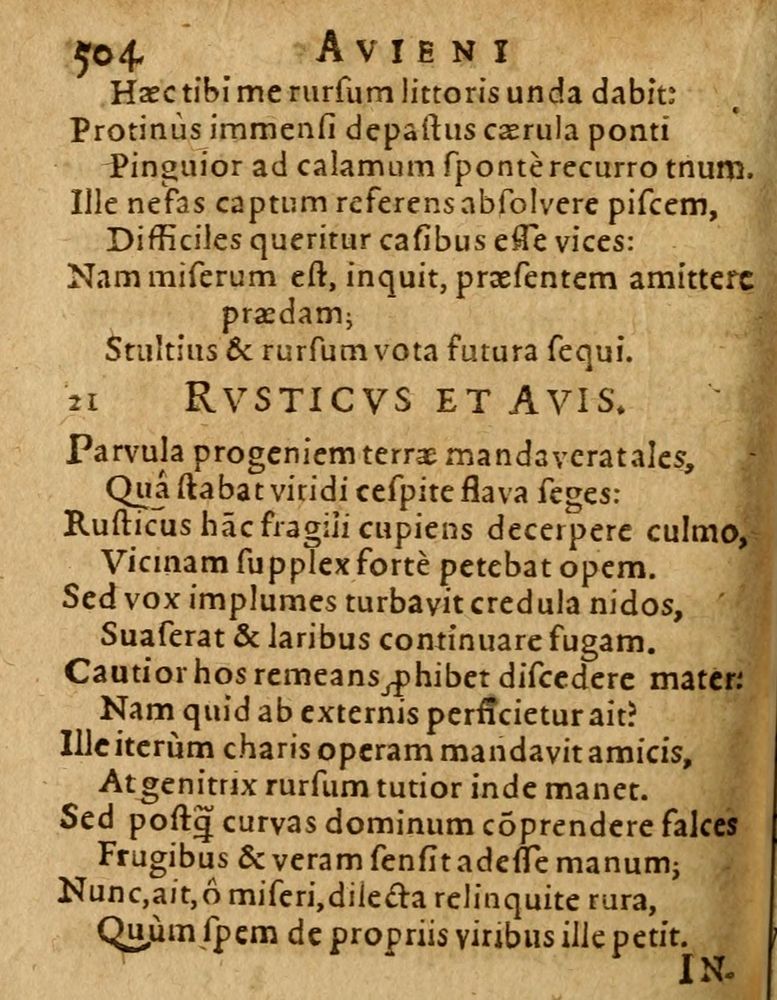 504 AVIENI
Hæc tibi me rurſum littoris unda dabit:
Protinùs immenſi depaſtus cærula ponti
Pinguior ad calamum ſpontè recurro tuum.
Ille nefas captum referens abſolvere piſcem,
Difficiles queritur caſibus eſſe vices:
Nam miſerum eſt, inquit, præſentem amittere
prædam;
Stultius & rurſum vota futura ſequi.
21 RVSTICVS ET AVIS.
Parvula progeniem terræ mandaverat ales,
Quâ ſtabat viridi ceſpite flava ſeges:
Ruſticus hāc fragili cupiens decerpere culmo,
Vicinam ſupplex fortè petebat opem.
Sed vox implumes turbavit credula nidos,
Suaſerat & laribus continuare fugam.
Cautior hos remeans ꝓhibet diſcedere mater:
Nam quid ab externis perficietur ait?
Ille iterùm charis operam mandavit amicis,
At genitrix rurſum tutior inde manet.
Sed poſtq̃ curvas dominum cōprendere falces
Frugibus & veram ſenſit adeſſe manum;
Nunc, ait, ô miſeri, dilecta relinquite rura,
Quùm ſpem de propriis viribus ille petit.
IN-